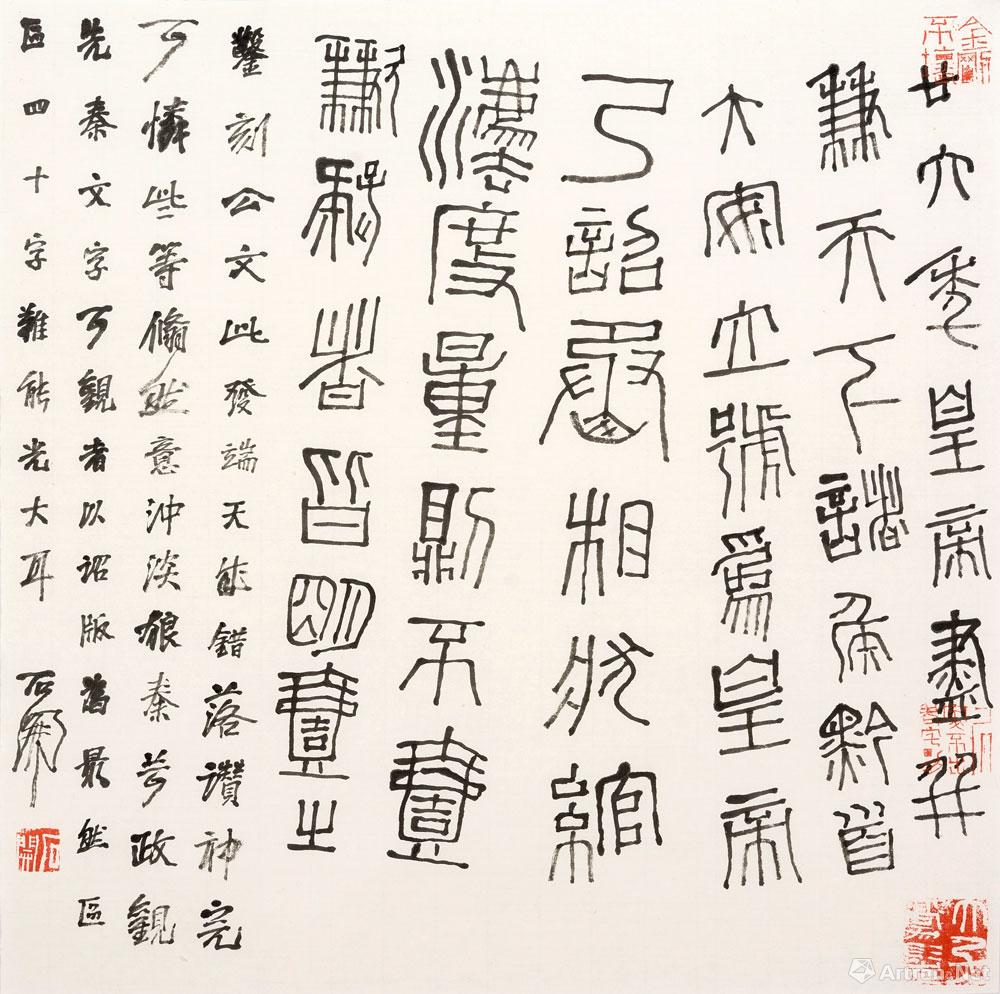 廿六年皇帝盡并
兼天下諸侯黔首
大安立號為皇帝
乃詔丞相狀綰
灋度量則不壹
歉疑者皆明壹之
鑿刻公文此發端天然錯落讚神完
可憐些等翛然意沖淡狼秦苛政觀
先秦文字可觀者以詔版為最然區
區四十字難能光大耳
石開
石開
Artron.Net